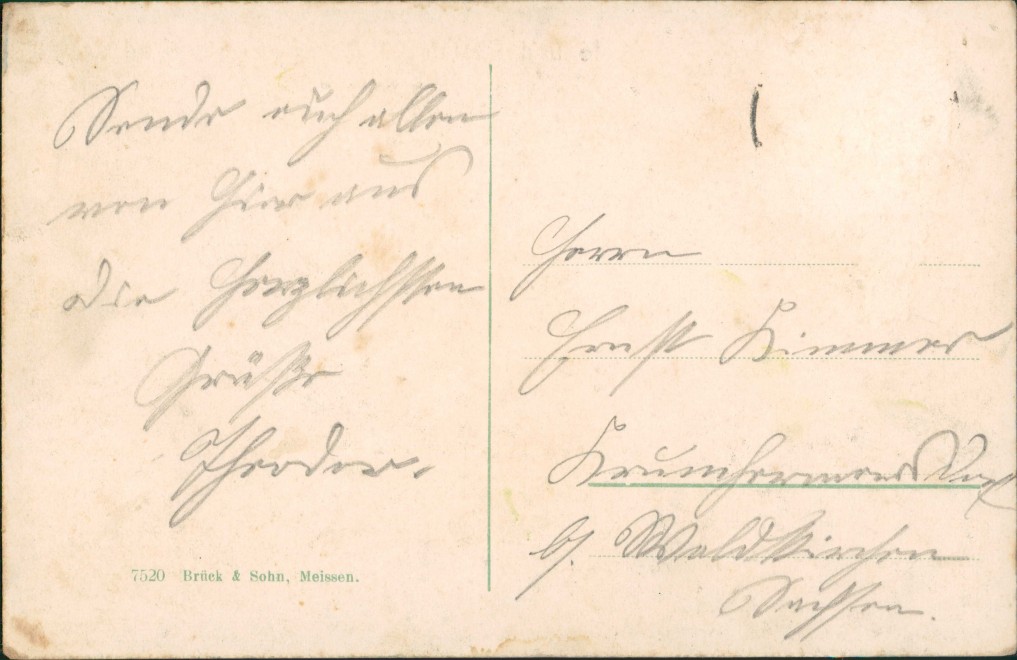 Sende euch allen
von hier aus
die herzlichsten
Grüße
Theodor.
7520 Brück & Sohn, Meissen.
Herrn
Ernst Kimmer
Krumhermersdorf
b/ Waldkirchen
Sachsen.